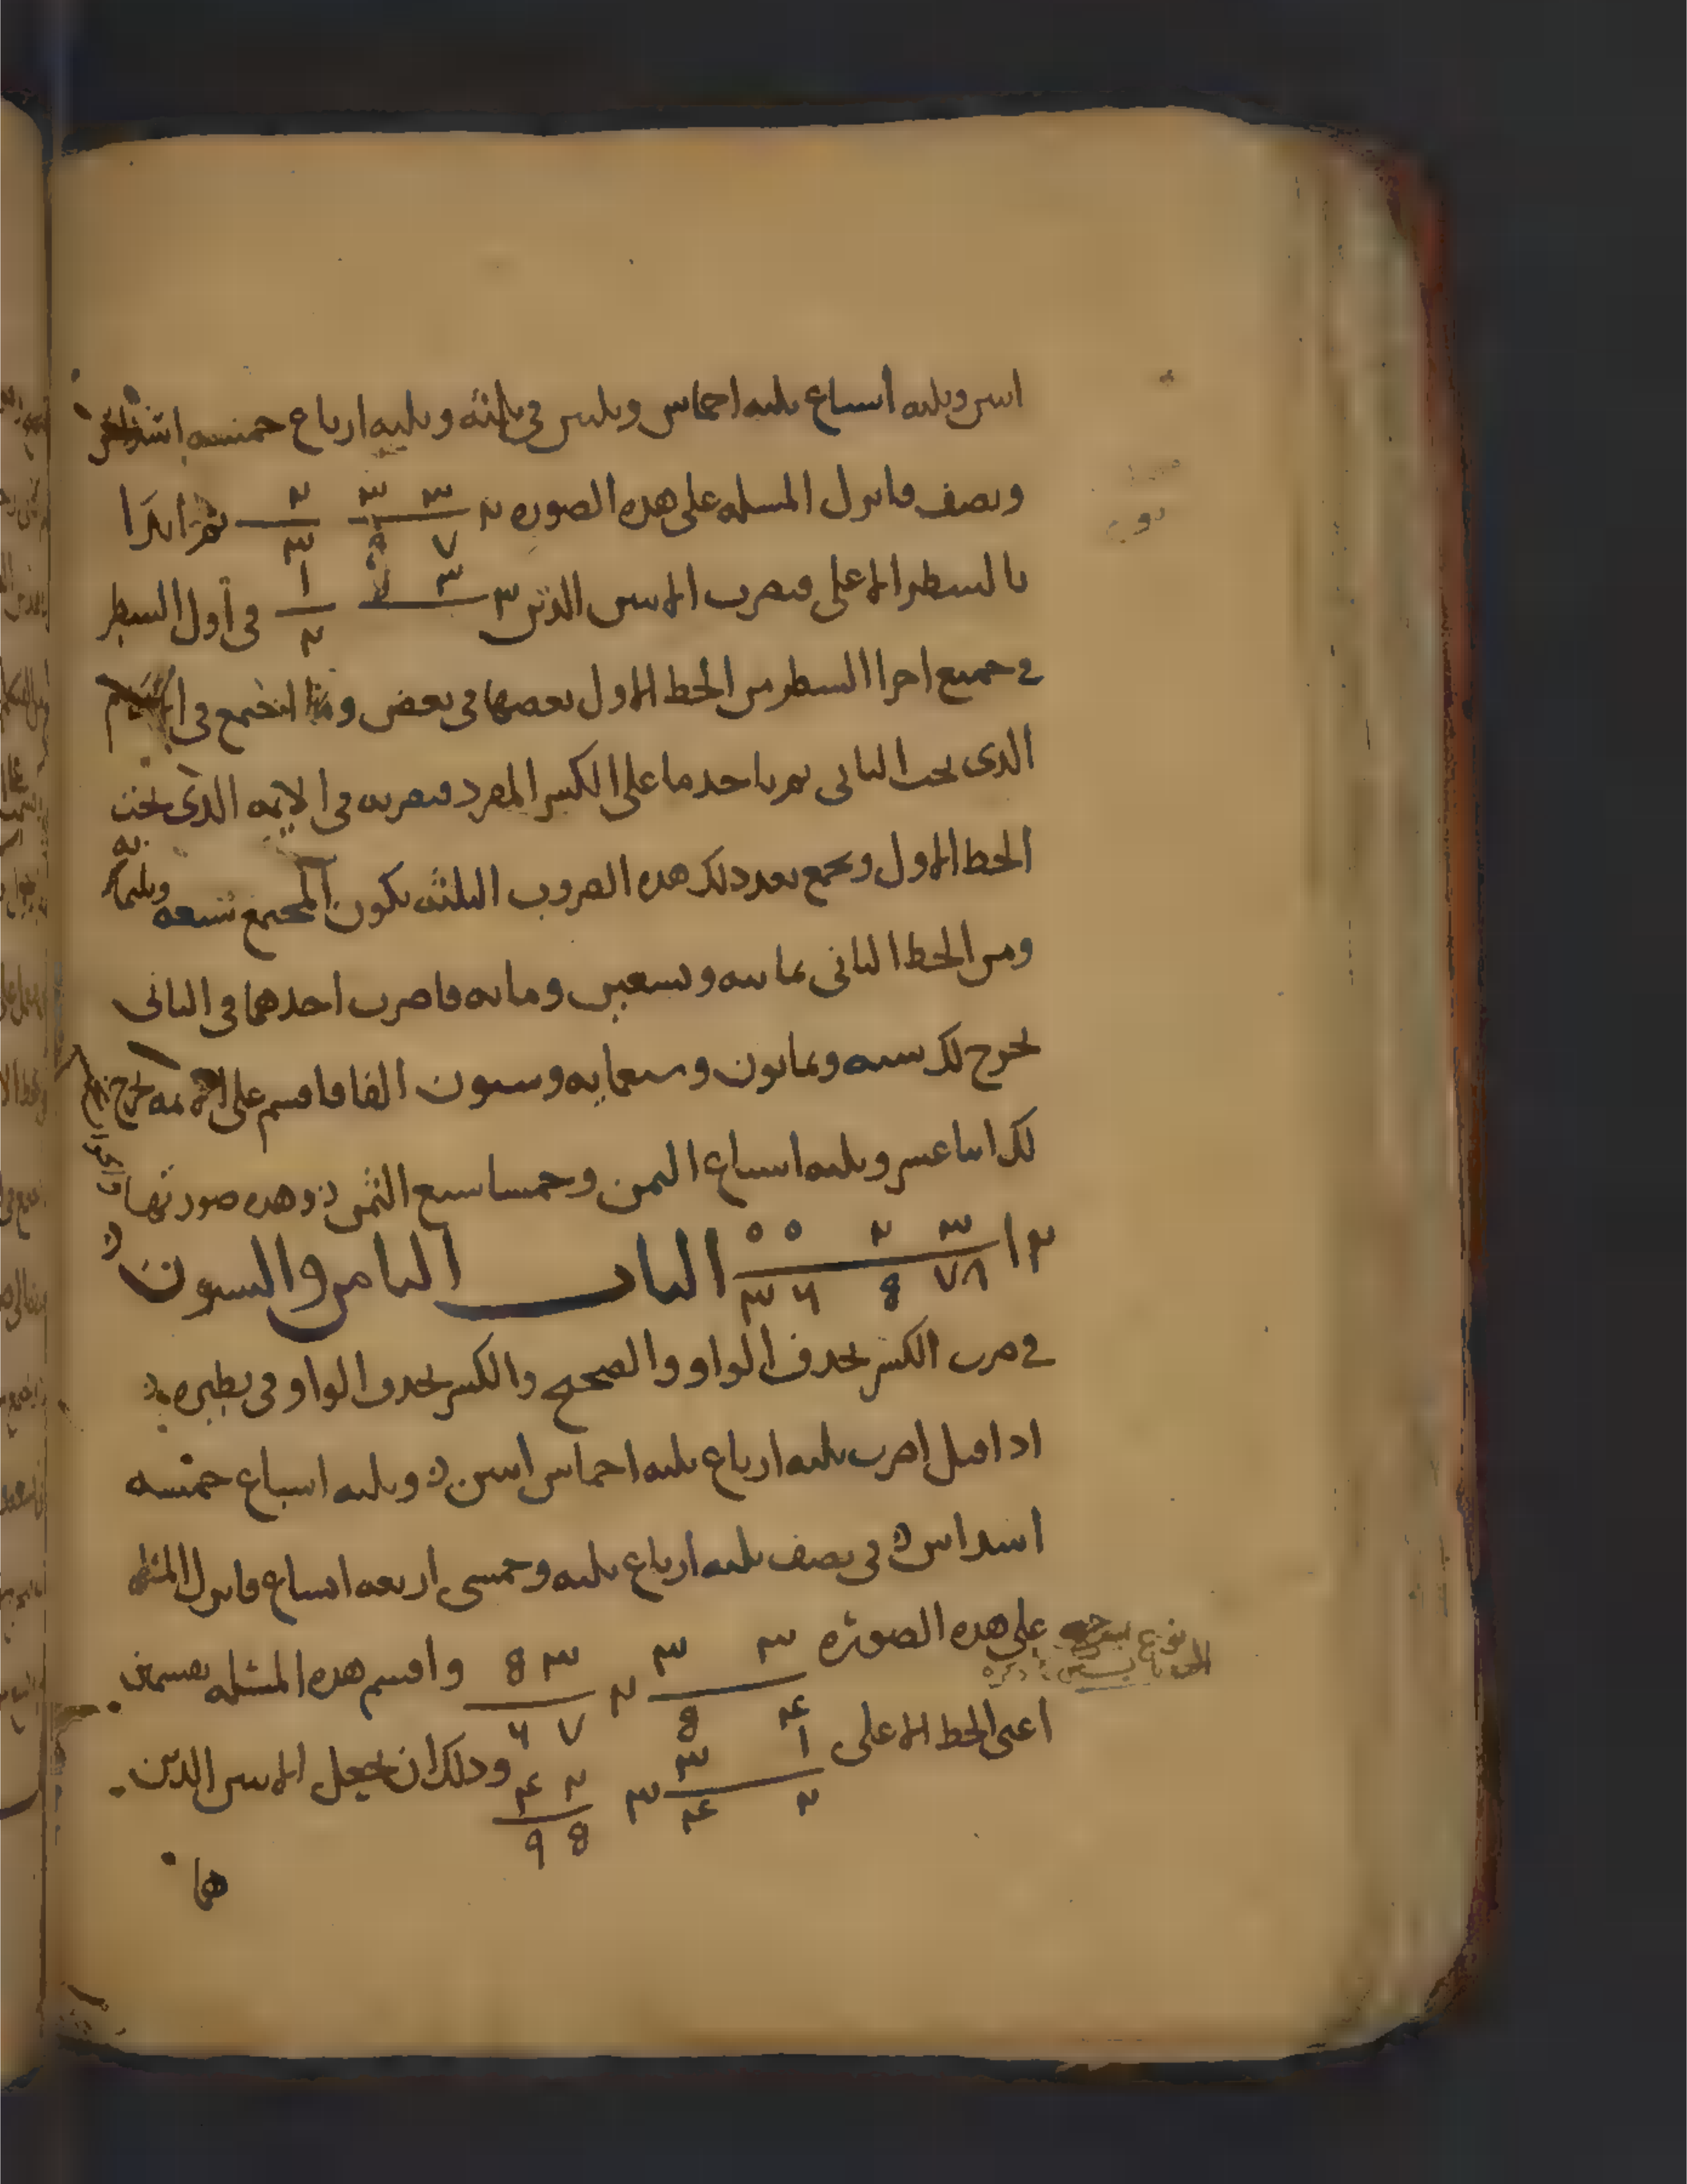 اثنين وثلثه اسباع ثلثه اخماس وثلثين في ثلثه وثلثه ارباع خمسه اسداس
ونصف فانزل المسله على هذه الصوره ٢ ٣ ٣ ٢ ثم ابدا
٧ ٣
بالسطر الاعلى فتضرب الاثنين الذين ٣ ٣ ١ في أول السطر
٢
في جميع اجزا السطر من الخط الاول بعضها في بعض وما اجتمع في
الذى تحت الثاني ثم ناخذ ما على الكسر المفرد فتضربه في الايمه الذى تحت
الخط الاول وتجمع بعد ذلك هذه الضروب الثلثه يكون المجتمع تسعه وثلثمايه
ومن الخط الثاني ثمانيه وتسعين ومايه فاضرب احدهما في الثاني
يخرج لك سته وثمانون وسبعمايه وستون الفا فاقسم على الايمه يخرج
لك اثنا عشر وثلثه اسباع الثمن وخمسا سبع الثمن وهذه صورتها
١٢ ٣ ٢ ٥ ٥ الباب الثامن والستون
٧٨ 8 ٦ ٣
في ضرب الكسر بحذف الواو والصحيح والكسر بحذف الواو في نظيره
اذا قيل اضرب ثلثه ارباع ثلثه اخماس اثنين وثلثه اسباع خمسه
اسداس في نصف ثلثه ارباع ثلثه وخمسى اربعه اتساع فانزل المسله
على هذه الصوره ٣ ٣ ٢ ٣ 8 واقسم هذه المسله بقسمين
٤ 8 ٧ ٦
اعنى الخط الاعلى ١ ٣ ٣ ٢ ٤ وذلك ان تجعل الاثنين الذين
٢ ٤ 8 ٩
هما